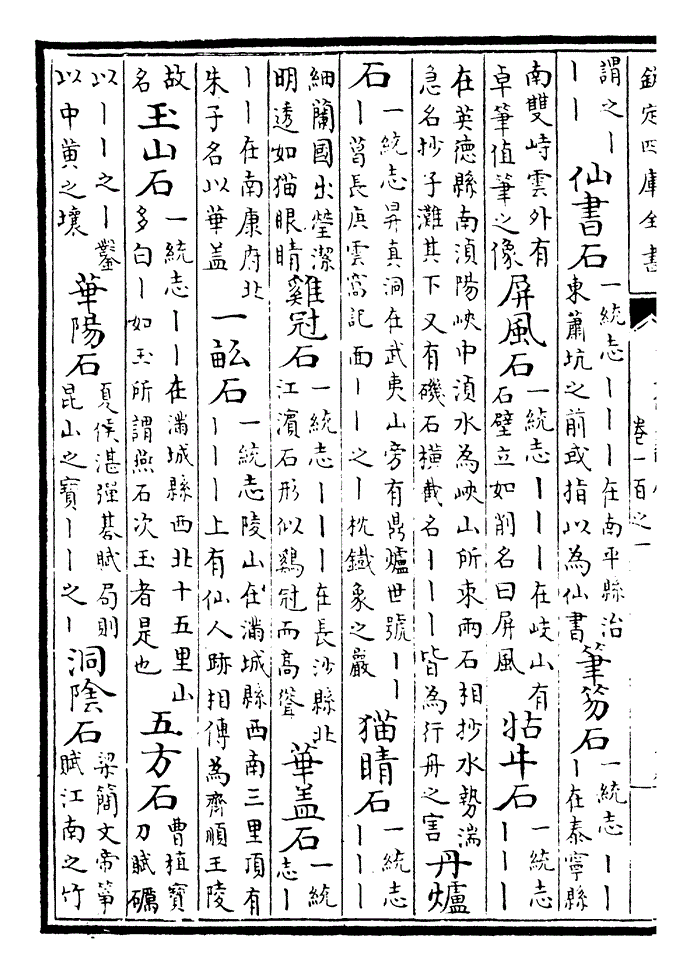 欽定四庫全書
卷一百之一
謂之丨丨丨仙書石一統志丨丨丨在南平縣治東蕭坑之前或指以為仙書筆笏石一統志丨丨丨在泰寧縣
南雙峙雲外有卓筆值筆之像屏風石一統志丨丨丨在岐山有石壁立如削名曰屏風牯牛石一統志丨丨丨
在英德縣南湞陽峽中湞水為峽山所束兩石相抄水勢湍急名抄子灘其下又有磯石横截名丨丨丨皆為行舟之害丹爐
石一統志昇真洞在武夷山旁有鼎爐世號丨丨丨葛長庚雲窩記西丨丨之丨枕鐵象之巖猫睛石一統志丨丨丨
細蘭國出瑩潔明透如猫眼睛雞冠石一統志丨丨丨在長沙縣北江濱石形似鷄冠而高聳華盖石一統志丨
丨丨在南康府北朱子名以華盖一畝石一統志陵山在滿城縣西南三里頂有丨丨丨上有仙人跡相傳為齊順王陵
故名玉山石一統志丨丨在滿城縣西北十五里山多白丨如玉所謂燕石次玉者是也五方石曹植寶刀賦礪
以丨丨之丨鑿以中黄之壤華陽石夏侯湛彈棊賦局則昆山之寳丨丨之丨洞陰石梁簡文帝箏賦江南之竹